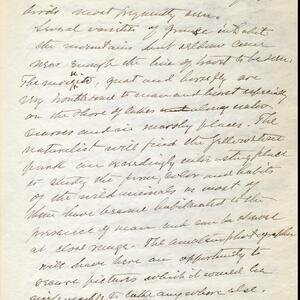 birds most frequently seen.
Several varieties of grouse inhabit
the mountains but seldom come
near enough the line of travel to be seen.
The mosquito, gnat and horsefly are
very troublesome to man and beast especially
on the shore of lakes along water
courses and in marshy places. The
naturalist will find the Yellowstone
park an exceedingly interesting place
to study the forms, color and habits
of the wild animals as most of
them have become habituated to the
presence of man and can be shot
at close range. The amateur photographer
will have here an opportunity to
secure pictures which it would be
to take anywhere else.